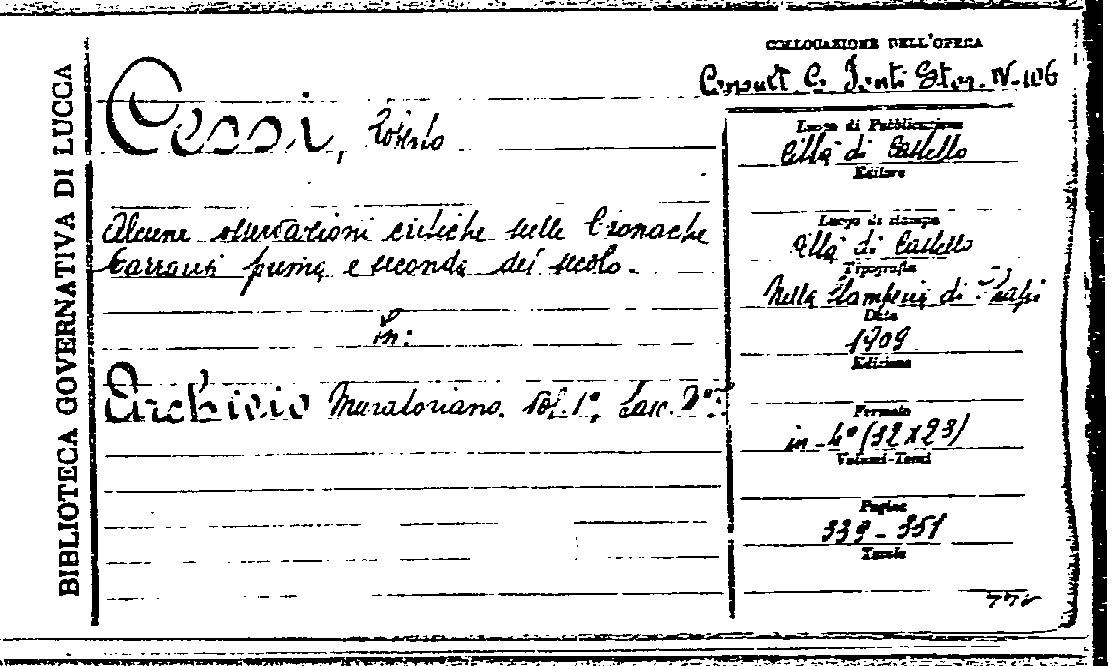 BIBLIOTECA GOVERNATIVA DI LUCCA
COLLOCAZIONE DELL'OPERA
Consult. C. Fonti Stor. IV-106
Cessi, Roberto
Alcune osservazioni critiche sulle Cronache
Carraresi prima e seconda del secolo.
in:
Archivio Muratoriano. Vol. 1°, fasc. 7°.
Luogo di Pubblicazione
Città di Castello
Editore
Luogo di stampa
Città di Castello
Tipografia
Nella Stamperia di
Data
1909
Edizione
Formato
in-4° (32x23)
Volumi-Tomi
Pagine
339-351
Tavole